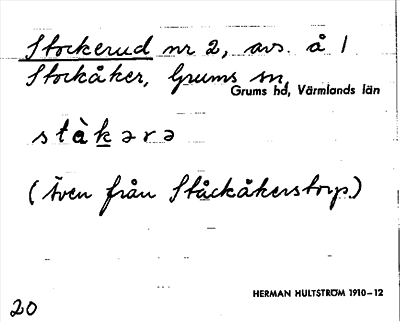 Stockerud nr 2, avs. å 1
Stockåker, Grums sn,
Grums hd, Värmlands län
stàkərə
(Även från Ståckåkerstorp)
HERMAN HULTSTRÖM 1910–12
20